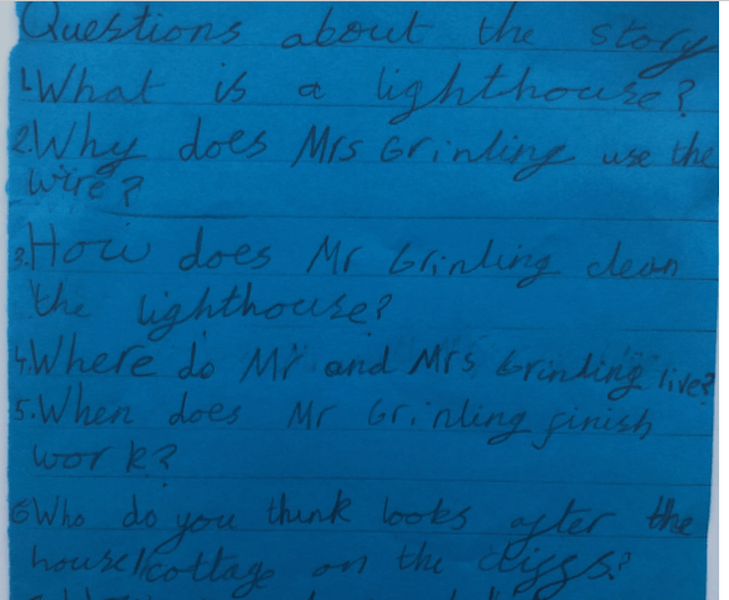 Questions about the story
1.What is a lighthouse?
2.Why does Mrs Grinling use the
wire?
3.How does Mr Grinling clean
the lighthouse?
4.Where do Mr and Mrs Grinling live?
5.When does Mr Grinling finish
work?
6Who do you think looks after the
house/cottage on the cliffs?